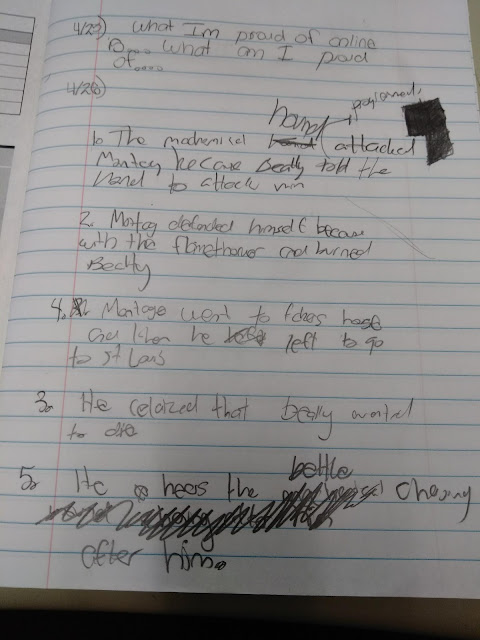 4/23) what I'm proud of online
B.... what am I proud
of.....
4/26)
hand programmed
1. The mechenical attacked
Montag because Beatty told the
Hand to attack him
2. Montag defended himself because
with the flamethrower and burned
Beatty
4. Montage went to fabers hose
and then he left to go
to st Louis
3. He relaized that beatty wanted
to die
5. He hears the
bettle chasing
after him.